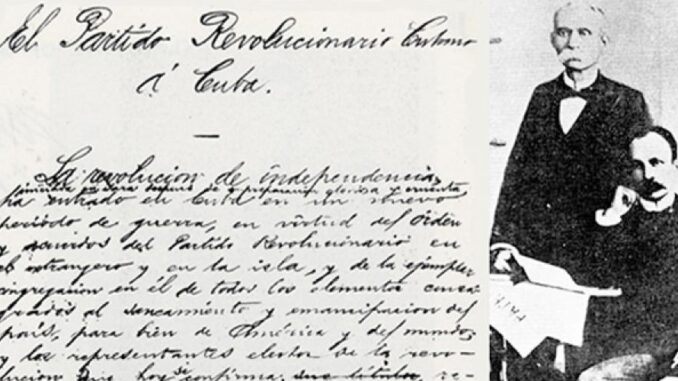 El Partido Revolucionario Cubano
á Cuba.
La revolucion de independencia,
iniciada en Yara despues de preparacion gloriosa y cruenta
ha entrado en Cuba en un nuevo
periodo de guerra, en virtud del orden
y acuerdos del Partido Revolucionario en
el extrangero y en la isla, y de la ejemplar
congregacion en él de todos los elementos consa-
grados al saneamiento y emancipacion del
país, para bien de América y del mundo;
y los representantes electos de la revo-
lucion que hoy se confirma, re-